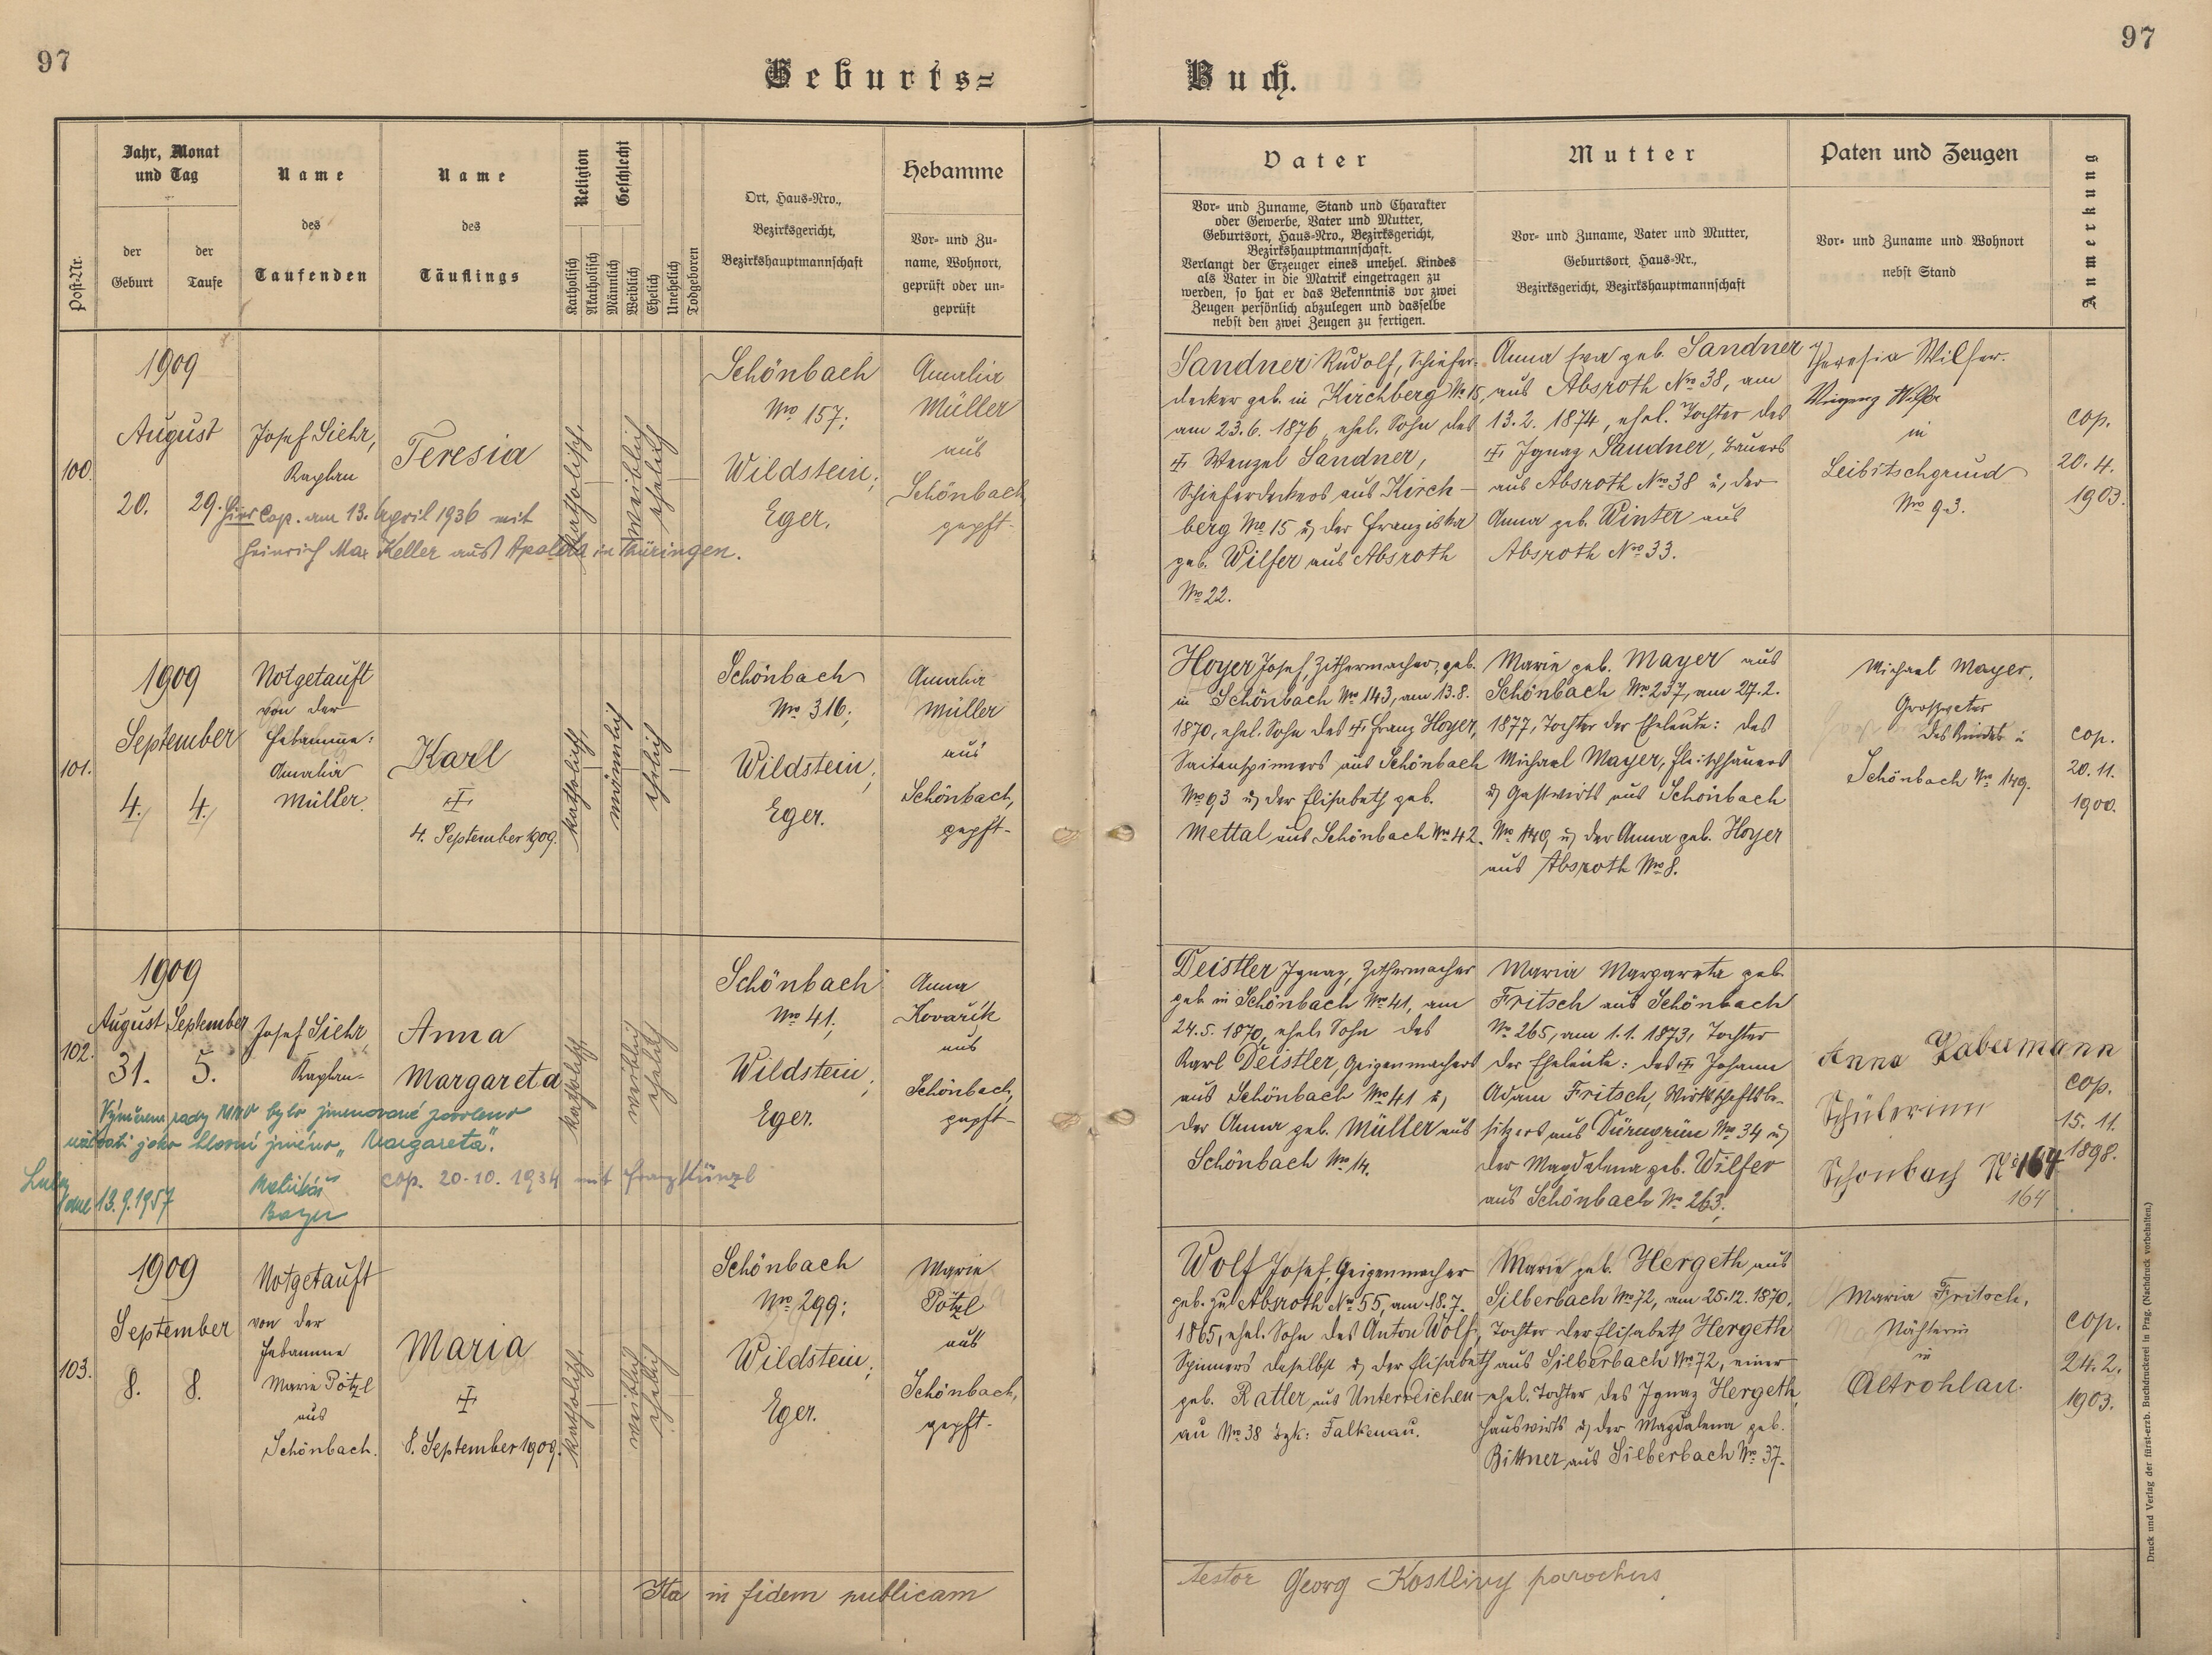 97
97
Geburts=
Buch.
Post-Nr.
Jahr, Monat
und Tag
der
Geburt
der
Taufe
Name
des
Taufenden
Name
des
Täuflings
Religion
Katholisch
Akatholisch
Geschlecht
Männlich
Weiblich
Ehelich
Unehelich
Todgeboren
Ort, Haus=Nro.,
Bezirksgericht,
Bezirkshauptmannschaft
Hebamme
Vor= und Zu=
name, Wohnort,
geprüft oder un=
geprüft
Vater
Vor= und Zuname, Stand und Charakter
oder Gewerbe, Vater und Mutter,
Geburtsort, Haus=Nro., Bezirksgericht,
Bezirkshauptmannschaft.
Verlangt der Erzeuger eines unehel. Kindes
als Vater in die Matrik eingetragen zu
werden, so hat er das Bekenntnis vor zwei
Zeugen persönlich abzulegen und dasselbe
nebst den zwei Zeugen zu fertigen.
Mutter
Vor= und Zuname, Vater und Mutter,
Geburtsort, Haus=Nr.,
Bezirksgericht, Bezirkshauptmannschaft
Paten und Zeugen
Vor= und Zuname und Wohnort
nebst Stand
Anmerkung
100.
1909
August
20.
29.
Josef Siehr,
Kaplan
Teresia
katholisch,
weiblich
ehelich
Schönbach
Nro 157;
Wildstein;
Eger.
Amalia
Müller
aus
Schönbach
gepft.
hier Cop. am 13. April 1936 mit
Heinrich Max Keller aus Apolda in Thüringen.
Sandner Rudolf, Schiefer-
decker geb. in Kirchberg No 15,
am 23.6. 1876, ehel. Sohn des
Wenzel Sandner,
Schieferdeckers aus Kirch-
berg No 15 u. der Franziska
geb. Wilfer aus Absroth
No 22.
Anna Eva geb. Sandner
aus Absroth No 38, am
13.2. 1874, ehel. Tochter des
Ignaz Sandner, Bauers
aus Absroth No 38 u. der
Anna geb. Winter aus
Absroth No 33.
Theresia Wilfer.
in
Leibitschgrund
No 93.
cop.
20.4.
1903.
101.
1909
September
4.
4.
Notgetauft
von der
Hebamme:
Amalia
Müller.
Karl
4. September 1909.
katholisch,
männlich
ehelich
Schönbach
No 316;
Wildstein;
Eger.
Amalia
Müller
aus
Schönbach,
gepft.
Hoyer Josef, Zithermacher, geb.
in Schönbach No 143, am 13.8.
1870, ehel. Sohn des Franz Hoyer,
Saitenspinners aus Schönbach
No 93 u. der Elisabeth geb.
Mettal aus Schönbach No 42.
Marie geb. Mayer aus
Schönbach No 237, am 27.2.
1877, Tochter der Eheleute: des
Michael Mayer, Fleischhauers
u. Gastwirts aus Schönbach
No 149 u. der Anna geb. Hoyer
aus Absroth No 8.
Michael Mayer,
Grossvater
des Kindes in
Schönbach No 149.
cop.
20.11.
1900.
102.
1909
August
September
31.
5.
Josef Siehr,
Kaplan
Anna
Margareta
katholisch,
weiblich
ehelich
Schönbach
No 41;
Wildstein;
Eger.
Anna
Kovařik
aus
Schönbach,
gepft.
Výměrem rady MNV bylo jmenované povoleno
užívati jako hlavní jméno „Margareta".
Luby
dne 13.9.1957
Matrikář
Bayer
cop. 20.10.1934 mit Franz Künzl
Deistler Ignaz, Zithermacher
geb. in Schönbach No 41, am
24.5. 1870, ehel. Sohn des
Karl Deistler, Geigenmachers
aus Schönbach No 41 u.
der Anna geb. Müller aus
Schönbach No 14.
Maria Margareta geb.
Fritsch aus Schönbach
No 265, am 1.1. 1873, Tochter
der Eheleute: des Johann
Adam Fritsch, Wirtschaftsbe-
sitzers aus Dürngrün No 34 u.
der Magdalena geb. Wilfer
aus Schönbach No 263.
Anna Habermann
Schülerinn
Schönbach No 164
164
cop.
15.11.
1898.
103.
1909
September
8.
8.
Notgetauft
von der
Hebamme
Marie Pötzl
aus
Schönbach.
Maria
8. September 1909.
katholisch,
weiblich
ehelich
Schönbach
No 299;
Wildstein;
Eger.
Marie
Pötzl
aus
Schönbach,
gepft.
Wolf Josef, Geigenmacher
geb. zu Absroth No 55, am 18.7.
1865, ehel. Sohn des Anton Wolf,
Spinners daselbst u. der Elisabeth
geb. Ratler aus Unterreichen-
au No 38 bzk: Falkenau.
Marie geb. Hergeth aus
Silberbach No 72, am 25.12. 1870,
Tochter der Elisabeth Hergeth
aus Silberbach No 72, einer
ehel. Tochter des Ignaz Hergeth,
Hauswirts u. der Magdalena geb.
Bittner aus Silberbach No 37.
Maria Fritsch,
Nähterin
in
Altrohlau.
cop.
24.2.
1903.
Ita in fidem publicam
testor Georg Kostlivy parochus
Druck und Verlag der fürst-erzb. Buchdruckerei in Prag. (Nachdruck vorbehalten.)